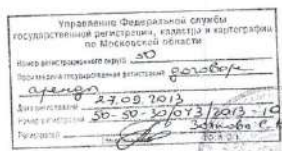 Управление Федеральной службы
государственной регистрации, кадастра и картографии
по Московской области
Номер регистрационного округа 50
Произведена государственная регистрация договора
аренды
Дата регистрации 27.09.2013
Номер регистрации 50-50-30/073/2013-10
Регистратор